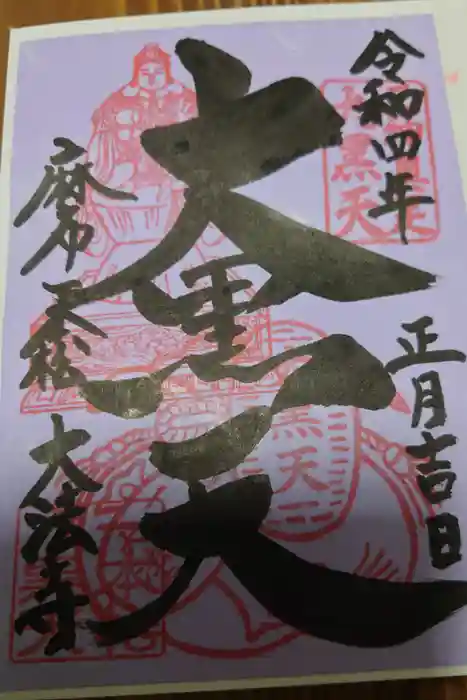 令和四年
正月吉日
大黒天
麻布
一本松
大法寺
大黒天
黒天